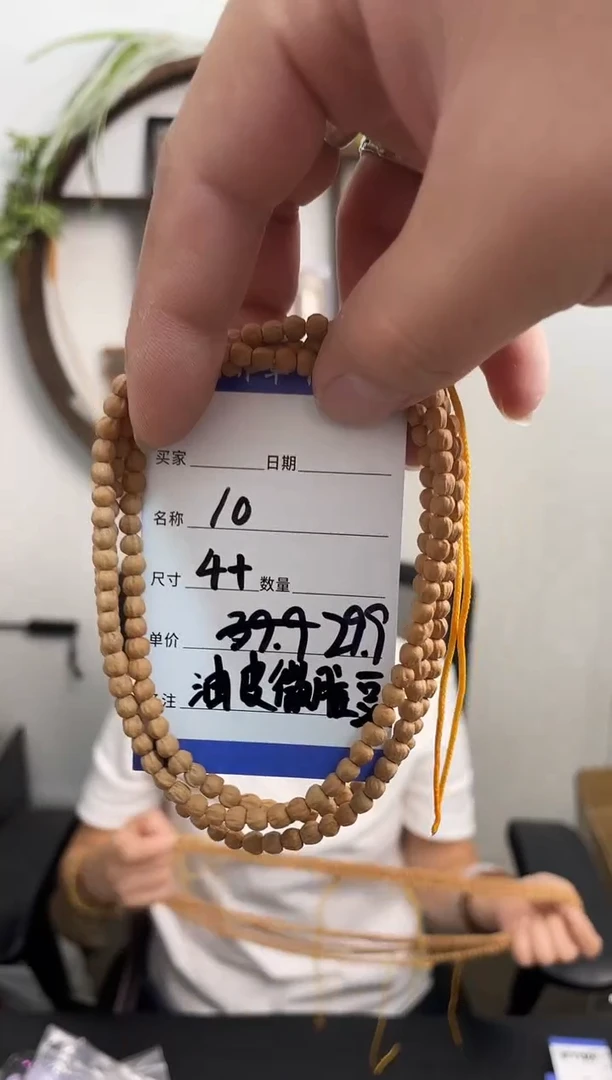 买家 日期
名称 10
尺寸 4+ 数量
单价 39.9 29.9
注 油皮微脏豆